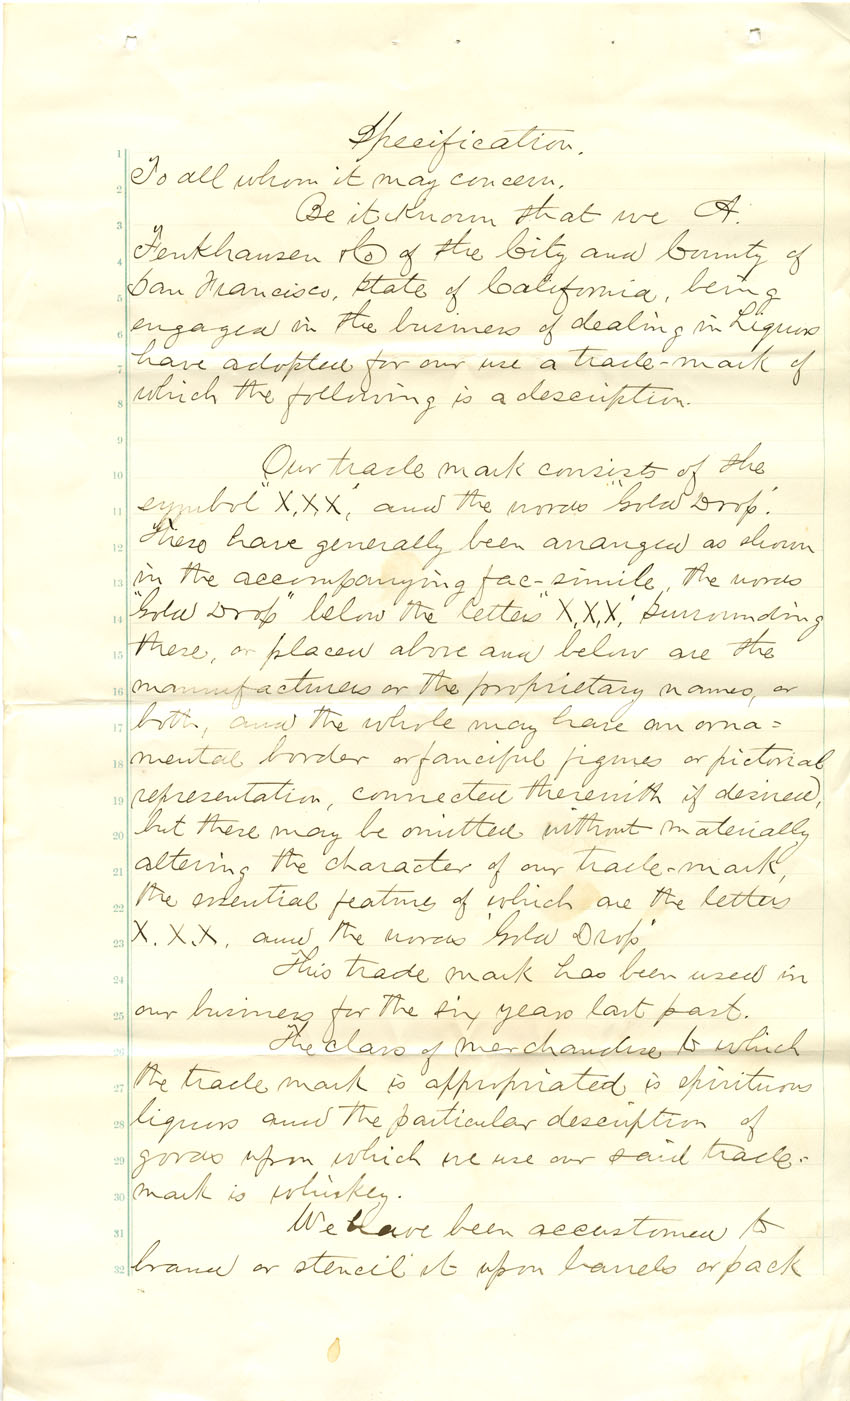 Specification.
1
To all whom it may concern.
2
Be it Known that we A.
3
Fenkhausen & Co of the City and County of
4
San Francisco, State of California, being
5
engaged in the business of dealing in Liquors
6
have adopted for our use a trade-mark of
7
which the following is a description.
8
9
Our trade mark consists of the
10
symbol "X,X,X", and the words "Gold Drop".
11
These have generally been arranged as shown
12
in the accompanying fac-simile, the words
13
"Gold Drop" below the letters "X,X,X," Surrounding
14
these, or placed above and below are the
15
manufacturers or the proprietary names, or
16
both, and the whole may have an orna=
17
mental border or fanciful figures or pictorial
18
representation, connected therewith if desired,
19
but these may be omitted without materially
20
altering the character of our trade-mark,
21
the essential features of which are the letters
22
X. X. X. and the words 'Gold Drop'
23
This trade mark has been used in
24
our business for the six years last past.
25
The class of merchandise to which
26
the trade mark is appropriated is spirituous
27
liquors and the particular description of
28
goods upon which we use our said trade-
29
mark is whiskey.
30
We have been accustomed to
31
brand or stencil it upon barrels or pack
32